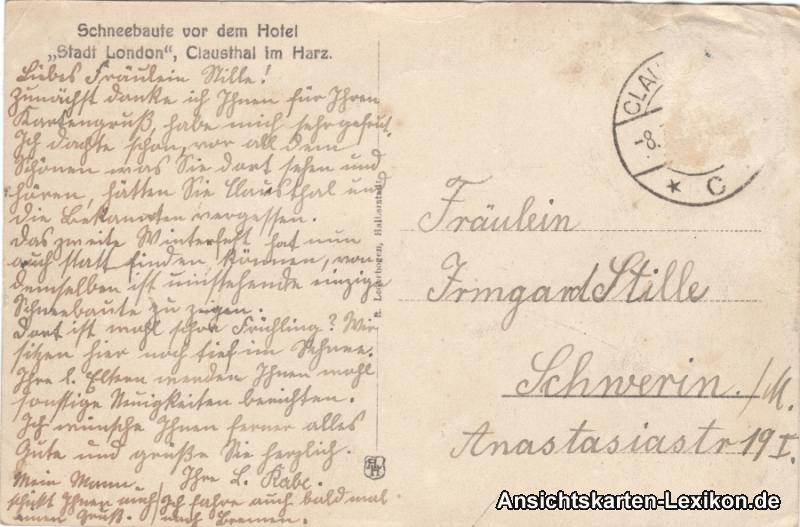 Schneebaute vor dem Hotel
„Stadt London“, Clausthal im Harz.
Liebes Fräulein Stille!
Zunächst danke ich Ihnen für Ihren
Kartengruß, habe mich sehr gefreut.
Ich dachte schon, vor all dem
Schönen was Sie dort sehen und
hören, hätten Sie Clausthal und
die Bekannten vergessen.
Das zweite Winterfest hat nun
auch statt finden können, von
demselben ist umstehende einzige
Schneebaute zu zeigen.
Dort ist wohl schon Frühling? Wir
sitzen hier noch tief im Schnee.
Ihre l. Eltern werden Ihnen wohl
sonstige Neuigkeiten berichten.
Ich wünsche Ihnen ferner alles
Gute und grüße Sie herzlich.
Ihre L. Kabe.
Mein Mann
schickt Ihnen auch
einen Gruß.
Ich fahre auch bald mal
nach Bremen.
R. Lederbogen, Halberstadt
CLAU
-8.
* C
Fräulein
Irmgard Stille
Schwerin./M.
Anastasiastr 19 I.
Ansichtskarten-Lexikon.de